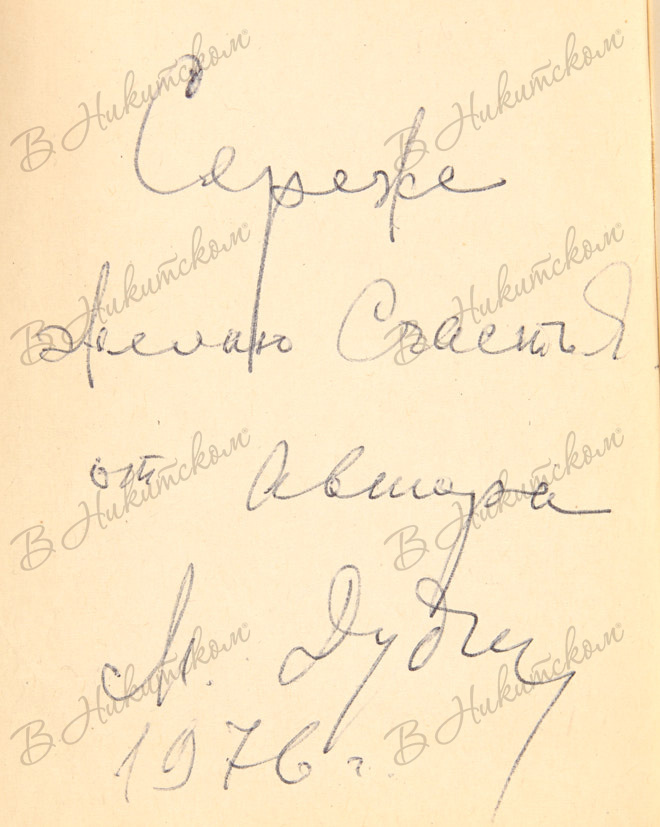 В Никитском® В Никитском®
Сереже
В Никитском® В Никитском®
Желаю Счастья
В Никитском® В Никитском®
от автора
М. Дудин
В Никитском® В Никитском®
1976 г.